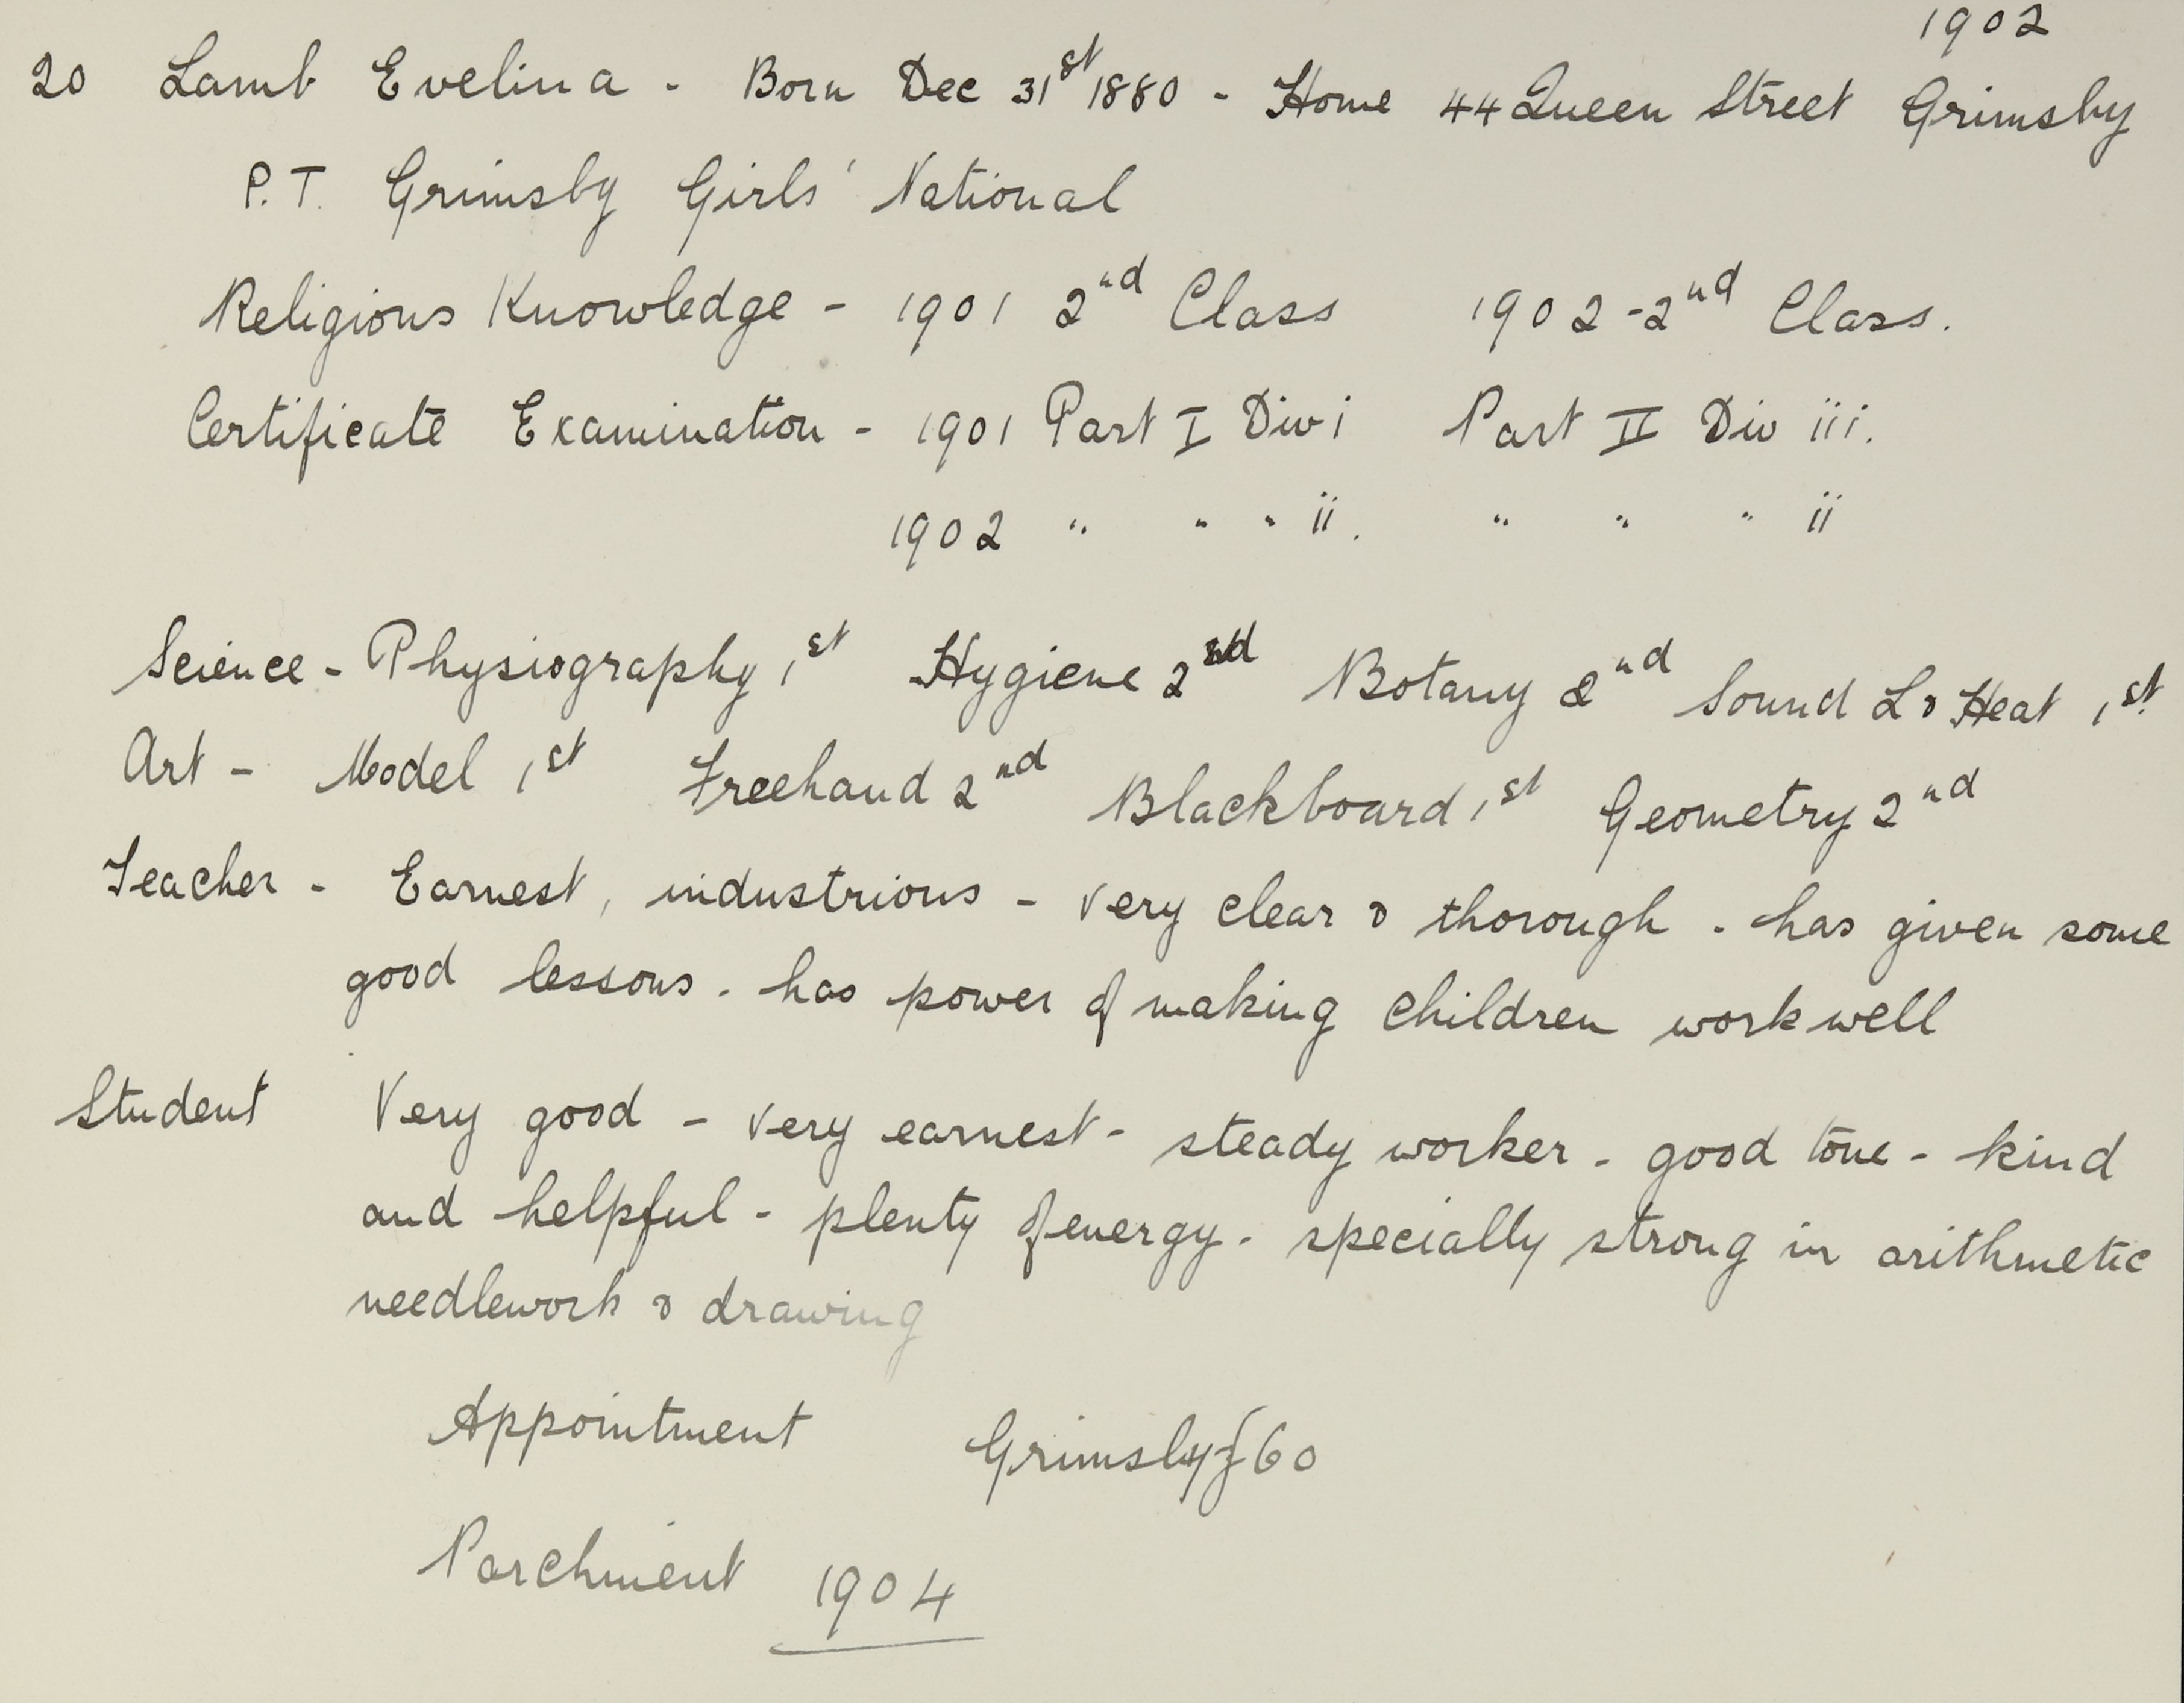 1902
20 Lamb Evelina - Born Dec 31st 1880 - Home 44 Queen Street Grimsby
P.T. Grimsby Girls' National
Religious Knowledge - 1901 2nd Class 1902 - 2nd Class.
Certificate Examination - 1901 Part I Div i Part II Div iii.
1902 " " " ii. " " " ii
Science - Physiography 1st Hygiene 2nd Botany 2nd Sound L & Heat 1st
Art - Model 1st Freehand 2nd Blackboard 1st Geometry 2nd
Teacher - Earnest, industrious - very clear & thorough - has given some
good lessons - has power of making children work well
Student Very good - very earnest - steady worker - good tone - kind
and helpful - plenty of energy - specially strong in arithmetic
needlework & drawing
Appointment Grimsby £60
Parchment 1904